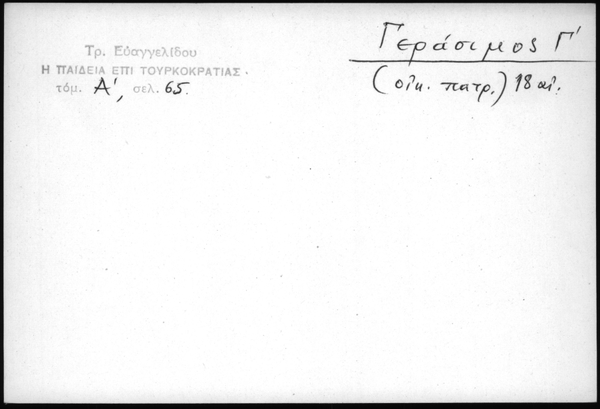 Τρ. Εὐαγγελίδου
Η ΠΑΙΔΕΙΑ ΕΠΙ ΤΟΥΡΚΟΚΡΑΤΙΑΣ.
τόμ. Α', σελ. 65.
Γεράσιμος Γ'
(οἰκ. πατρ.) 18 αἰ.